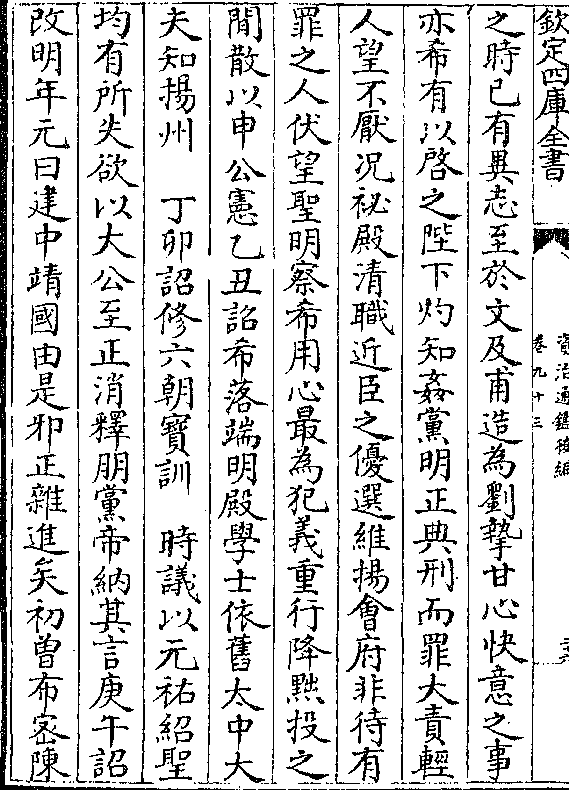 欽定四庫全書
資治通鑑後編
卷九十三
之時已有異志至於文及甫造為劉摯甘心快意之事
亦希有以啓之陛下灼知姦黨明正典刑而罪大責輕
人望不厭况祕殿清職近臣之優選維揚會府非待有
罪之人伏望聖明察希用心最為犯義重行降黜投之
閒散以申公憲乙丑詔希落端明殿學士依舊太中大
夫知揚州　丁卯詔修六朝寶訓　時議以元祐紹聖
均有所失欲以大公至正消釋朋黨帝納其言庚午詔
改明年元曰建中靖國由是邪正雜進矣初曾布密陳